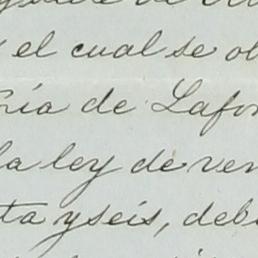 y el cual se ob
ría de Lafor
la ley de ven
ta y seis, debi